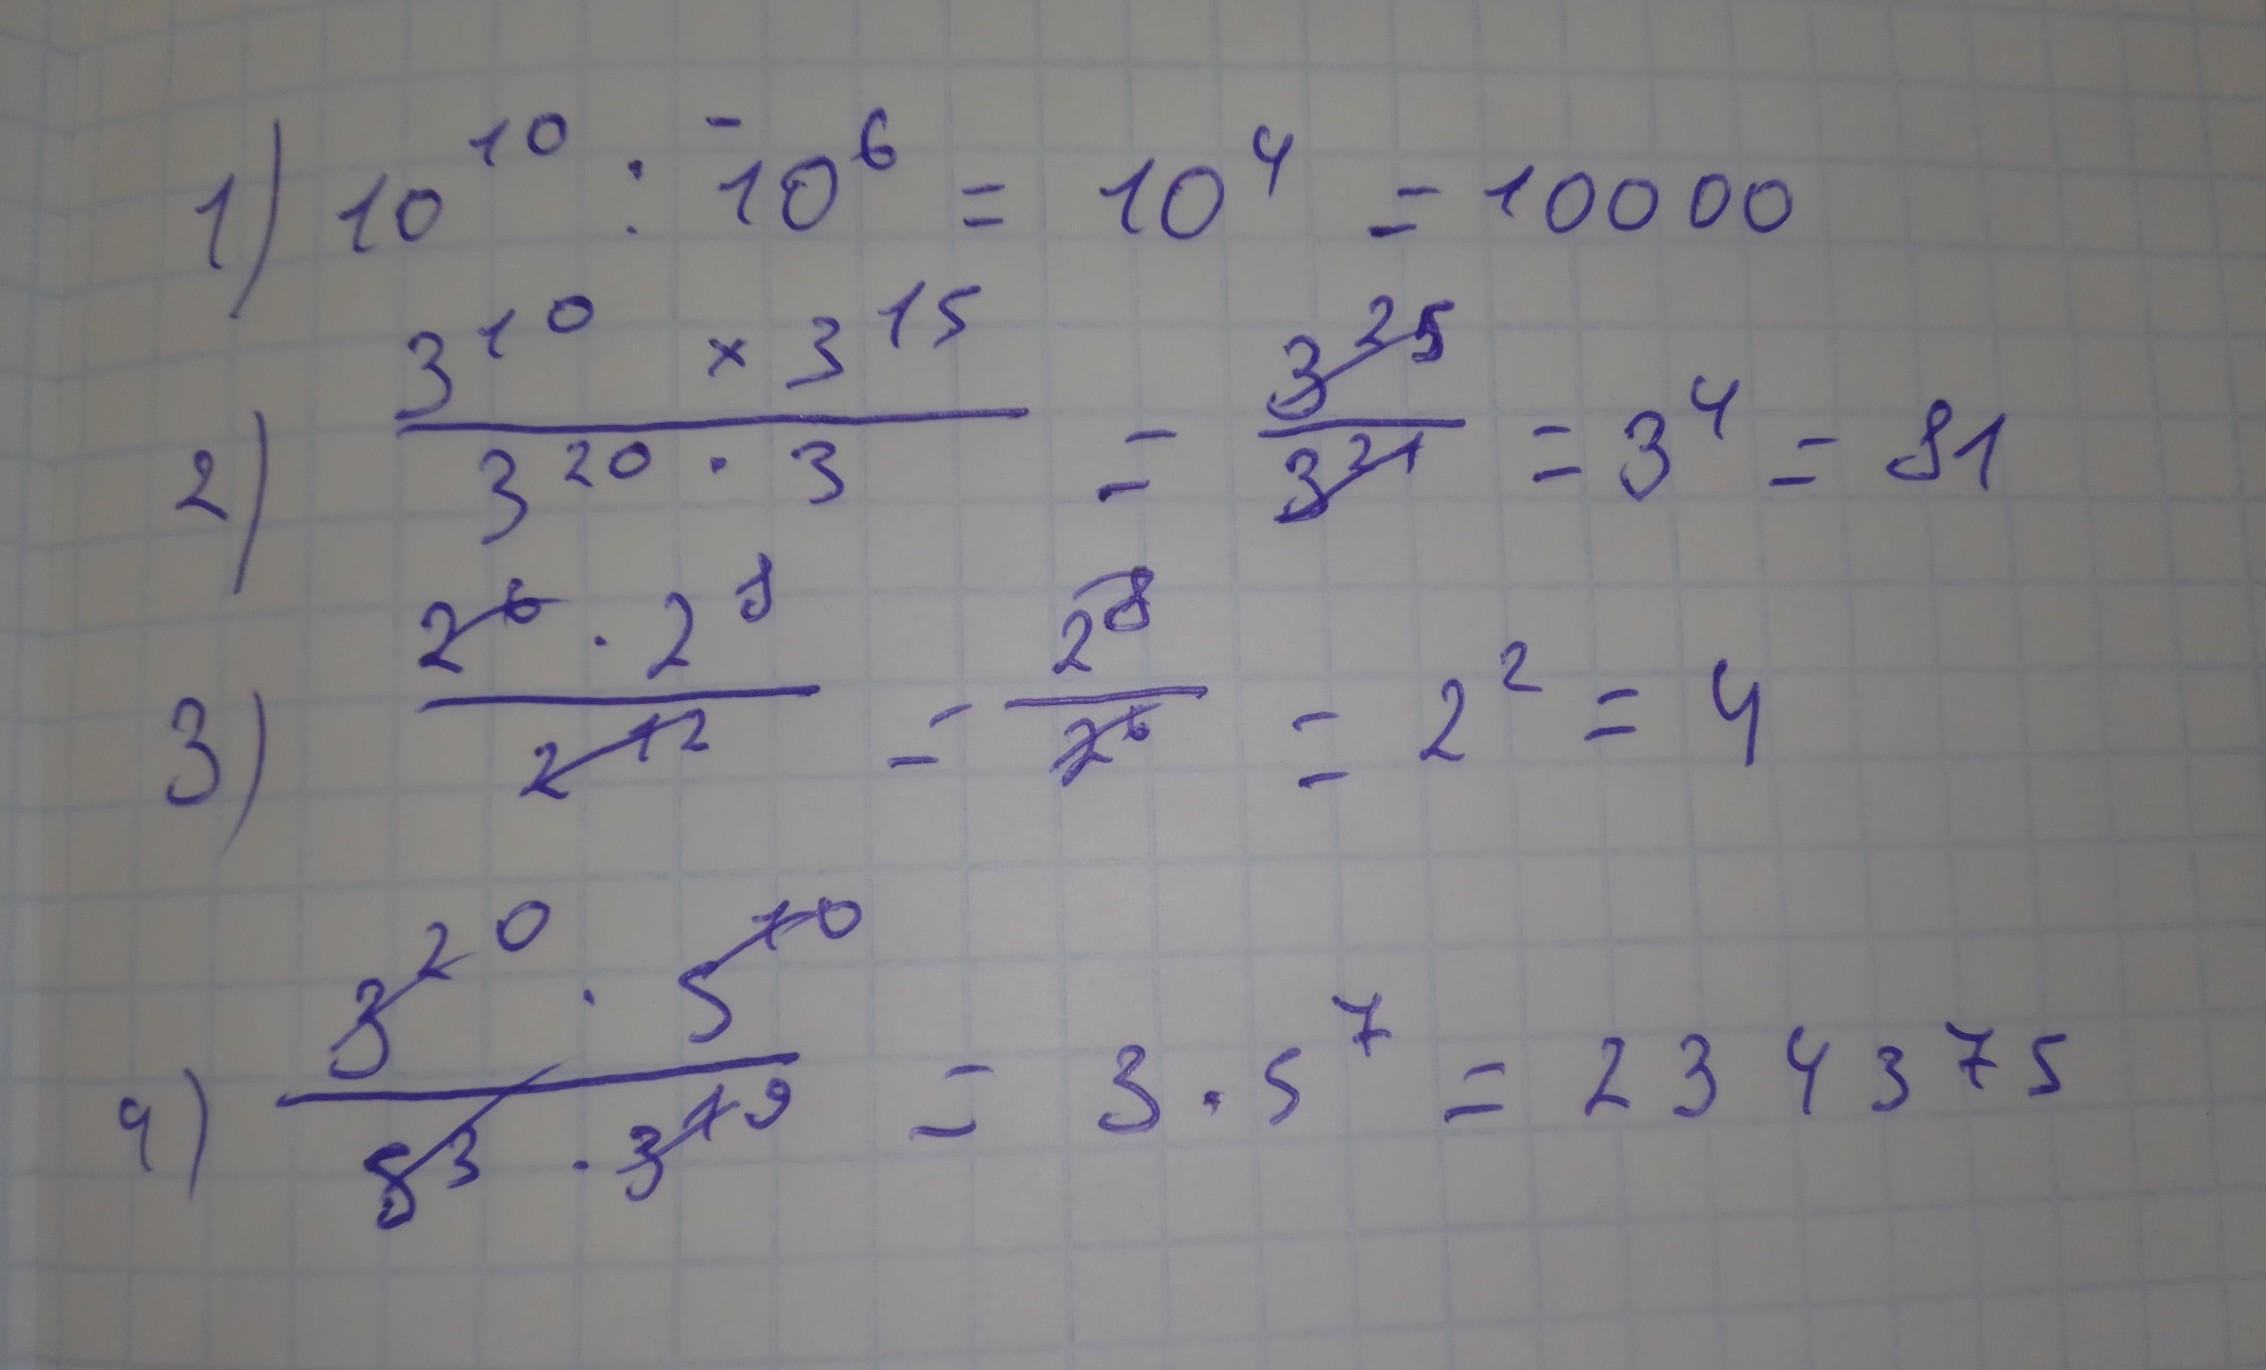 1) 10^10 : 10^6 = 10^4 = 10000
2) (3^10 × 3^15) / (3^20 · 3) = 3^25 / 3^21 = 3^4 = 81
3) (2^6 · 2^8) / 2^12 = 2^8 / 2^6 = 2^2 = 4
4) (3^20 · 5^10) / (5^3 · 3^19) = 3 · 5^7 = 234375